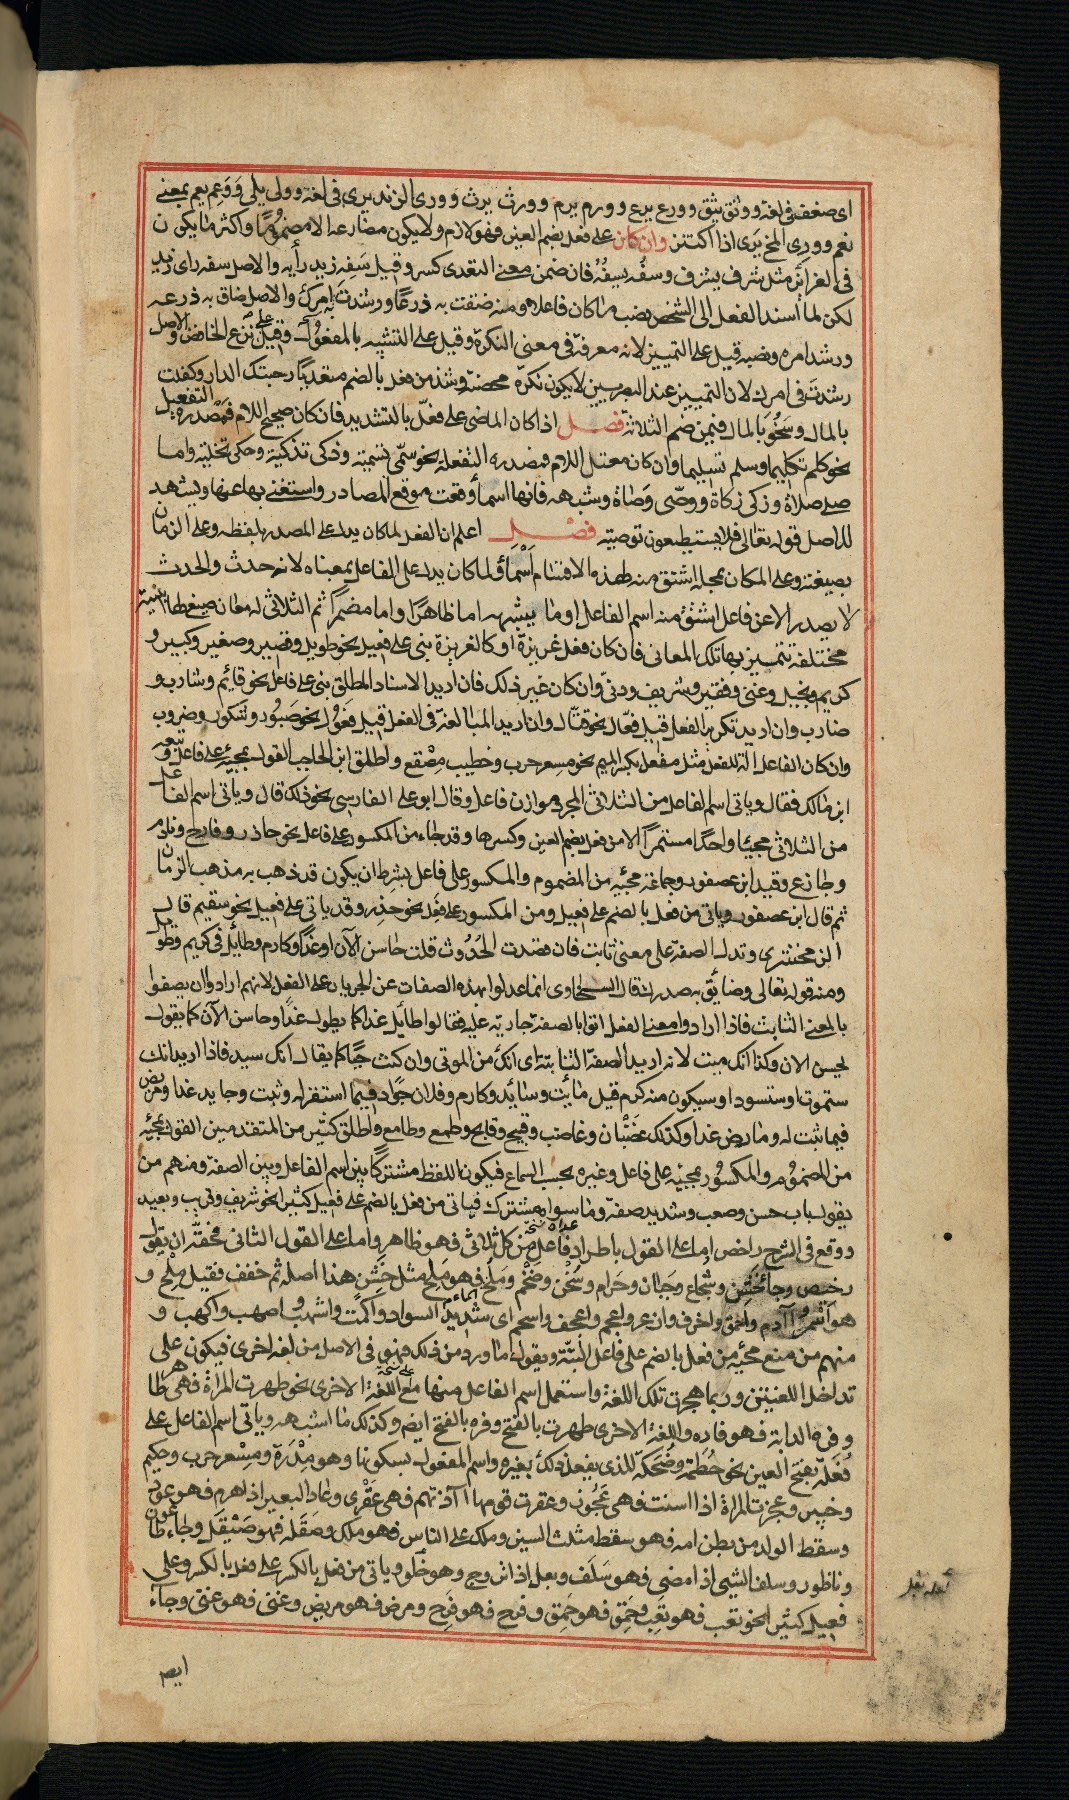 اى ضعف فى لغة ووثق يثق وورع يرع وورم يرم وورث يرث وورى الزند يرى فى لغة وولى يلى ووعم يعم بمعنى
نعم وورى المخ يرى اذا اكتنز وان كان على فعل بضم العين فهو لازم ولا يكون مضارعه الا مضمومًا واكثر ما يكون
فى الغرائز مثل شرف يشرف وسفُه يسفُه فان ضمن معنى التعدى كسر وقيل سَفِه زيد رأيه والاصل سفه راى زيد
لكن لما اسند الفعل الى الشخص نصب ما كان فاعلا ومنه ضقت به ذرعًا ورشدتَ امرك والاصل ضاق به ذرعه
ورشد امره ونصبه قيل على التمييز لانه معرفة فى معنى النكرة وقيل على التشبيه بالمفعول وقيل على نزع الخافض والاصل
رشدتَ فى امرك لان التمييز عند البصريين لا يكون نكرة محضة وشذ من فعل بالضم متعديًا رحبتك الدار وكفلت
بالمال وسَخُوَ بالمال فيمن ضم الثلاثة فصل اذا كان الماضى على فعّل بالتشديد فان كان صحيح اللام فمصدره التفعيل
نحو كلم تكليما وسلم تسليما وان كان معتل اللام فمصدره التفعلة نحو سمّى تسمية وذكى تذكية وحلى تحلية واما
صلى صلاة وزكى زكاة ووصّى وَصَاة وشبهه فانها اسماء وقعت موقع المصادر واستغنى بها عنها ويشهد
للاصل قوله تعالى فلا يستطيعون توصية فصل اعلم ان الفعل لما كان يدل على المصدر بلفظه وعلى الزمان
بصيغته وعلى المكان بمحله اشتق منه لهذه الاقسام اسماء ولما كان يدل على الفاعل بمعناه لانه حدث والحدث
لا يصدر الا عن فاعل اشتق منه اسم الفاعل او ما يشبهه اما ظاهرًا واما مضمرًا ثم الثلاثى له معان صيغ لها ابنية
مختلفة تتميز بها تلك المعانى فان كان فعل غريزة او كالغريزة بنى على فعيل نحو طويل وقصير وصغير وكبير و
كريم وبخيل وغنى وفقير وشريف ودنىّ وان كان غير ذلك فان اريد الاسناد المطلق بنى على فاعل نحو قائم وشارب و
ضارب وان اريد تكرير الفعل قيل فعّال نحو قتّال وان اريد المبالغة فى الفعل قيل فَعُول نحو صَبُور وشكور وضروب
وان كان الفاعل آلة للفعل مثل مفعل بكسر الميم نحو مسعر حرب وخطيب مِصْقع واطلق ابن الحاجب القول بمجيئه على فاعل وتبعه
ابن مالك فقال وياتى اسم الفاعل من الثلاثى المجرد موازن فاعل وقال ابو على الفارسى نحو ذلك قال وياتى اسم الفاعل
من الثلاثى مجيئا واحدًا مستمرًا الا من فعل بضم العين وكسرها وقد جاء من المكسور على فاعل نحو حاذر وفارح ونادم
وجازع وقيد ابن عصفور وجماعة مجيئه من المضموم والمكسور على فاعل بشرط ان يكون قد ذهب به مذهب الزمان
ثم قال ابن عصفور وياتى من فعل بالضم على فعيل ومن المكسور على فَعِل نحو حذر وقد ياتى على فعيل نحو سقيم قال
الزمخشرى وتدل الصفة على معنى ثابت فان قصدت الحُدُوث قلت حاسن الآن او غدًا وكارم وطائل فى كريم وطويل
ومنه قوله تعالى وضائق به صدرك قال السخاوى انما عدلوا بهذه الصفات عن الجريان على الفعل لانهم ارادوا ان يصفوا
بالمعنى الثابت فاذا ارادوا معنى الفعل اتوا بالصفة جارية عليه فقالوا طائل غدا كما يطول غدًا وحاسن الآن كما يقول
يحسن الان وكذا انك ميت لانه اريد الصفة الثابتة اى انك من الموتى وان كنت حيًّا كما يقال انك سيد فاذا اريد انك
ستموت او ستسود او سيكون منه كرم قيل مائت وسائد وكارم وفلان جَواد فيما استقر له وثبت وجايد غدا ومريض
فيما ثبت له ومارض غدا وكذلك غضْبان وغاضب وقبيح وقابح وطمع وطامع واطلق كثير من المتقدمين القول بمجيئه
من المضموم والمكسور مجيئه على فاعل وغيره بحسب السماع فيكون اللفظ مشتركًا بين اسم الفاعل وبين الصفة ومنهم من
يقول باب حسن وصعب وشديد صفة وما سواه مشترك فياتى من فعل بالضم على فعيل كثيرا نحو شريف وقريب وبعيد
ووقع فى الشرح راخص اما على القول باطراد فاعل من كل ثلاثى فهو ظاهر واما على القول الثانى فحقه ان يقول
رخيص وجاء خَشِن وشُجاع وجَبان وحَرام وسَخُن وضَخْم ومَلُح فهو مَلِح مثل خَشِن هذا اصله ثم خفف فقيل مِلْح و
هو اسْمَر وآدم واحمق واخرق وارعن واعجم واعجف واسحم اى شديد السواد واكمت واشهب واصهب واكهب و
منهم من منع مجيئه من فعل بالضم على فاعل البتّة ويقول ما ورد من ذلك فهو فى الاصل من لغة اخرى فيكون على
تداخل اللغتين وربما هجرت تلك اللغة واستعمل اسم الفاعل منها مع اللغة الاخرى نحو طهرت المرأة فهى طاهر
وفره الدابة فهو فاره واللغة الاخرى طهرت بالفتح وفره بالفتح ايضا وكذلك ما اشبهه وياتى اسم الفاعل على
فُعَلة بفتح العين نحو حُطَمة وضُحَكة للذى يفعل ذلك بغيره واسم المفعول بسكونها وهو مِدْرَه ومِسْعر حرب وحكيم
وخبير وعجزت المرأة اذا اسنت فهى عَجُوز وعقرت قومها آذتهم فهى عَقْرى وعاد البعير اذا هرم فهو عود
وسقط الولد من بطن امه فهو سقط مثلث السين وملك على الناس فهو ملك وصَقَله فهو صَيْقَل وجاء طاعون
وناظور وسلف الشىء اذا مضى فهو سَلَف وبعل اذا تزوج وهو خلو وياتى من فعل بالكسر على فعل بالكسر وعلى
فعيل كثيرا نحو تعب فهو تَعِب وحَمِق فهو حَمِق وفرح فهو فَرِح ومرض فهو مريض وغنى فهو غنى وجاء
ايض